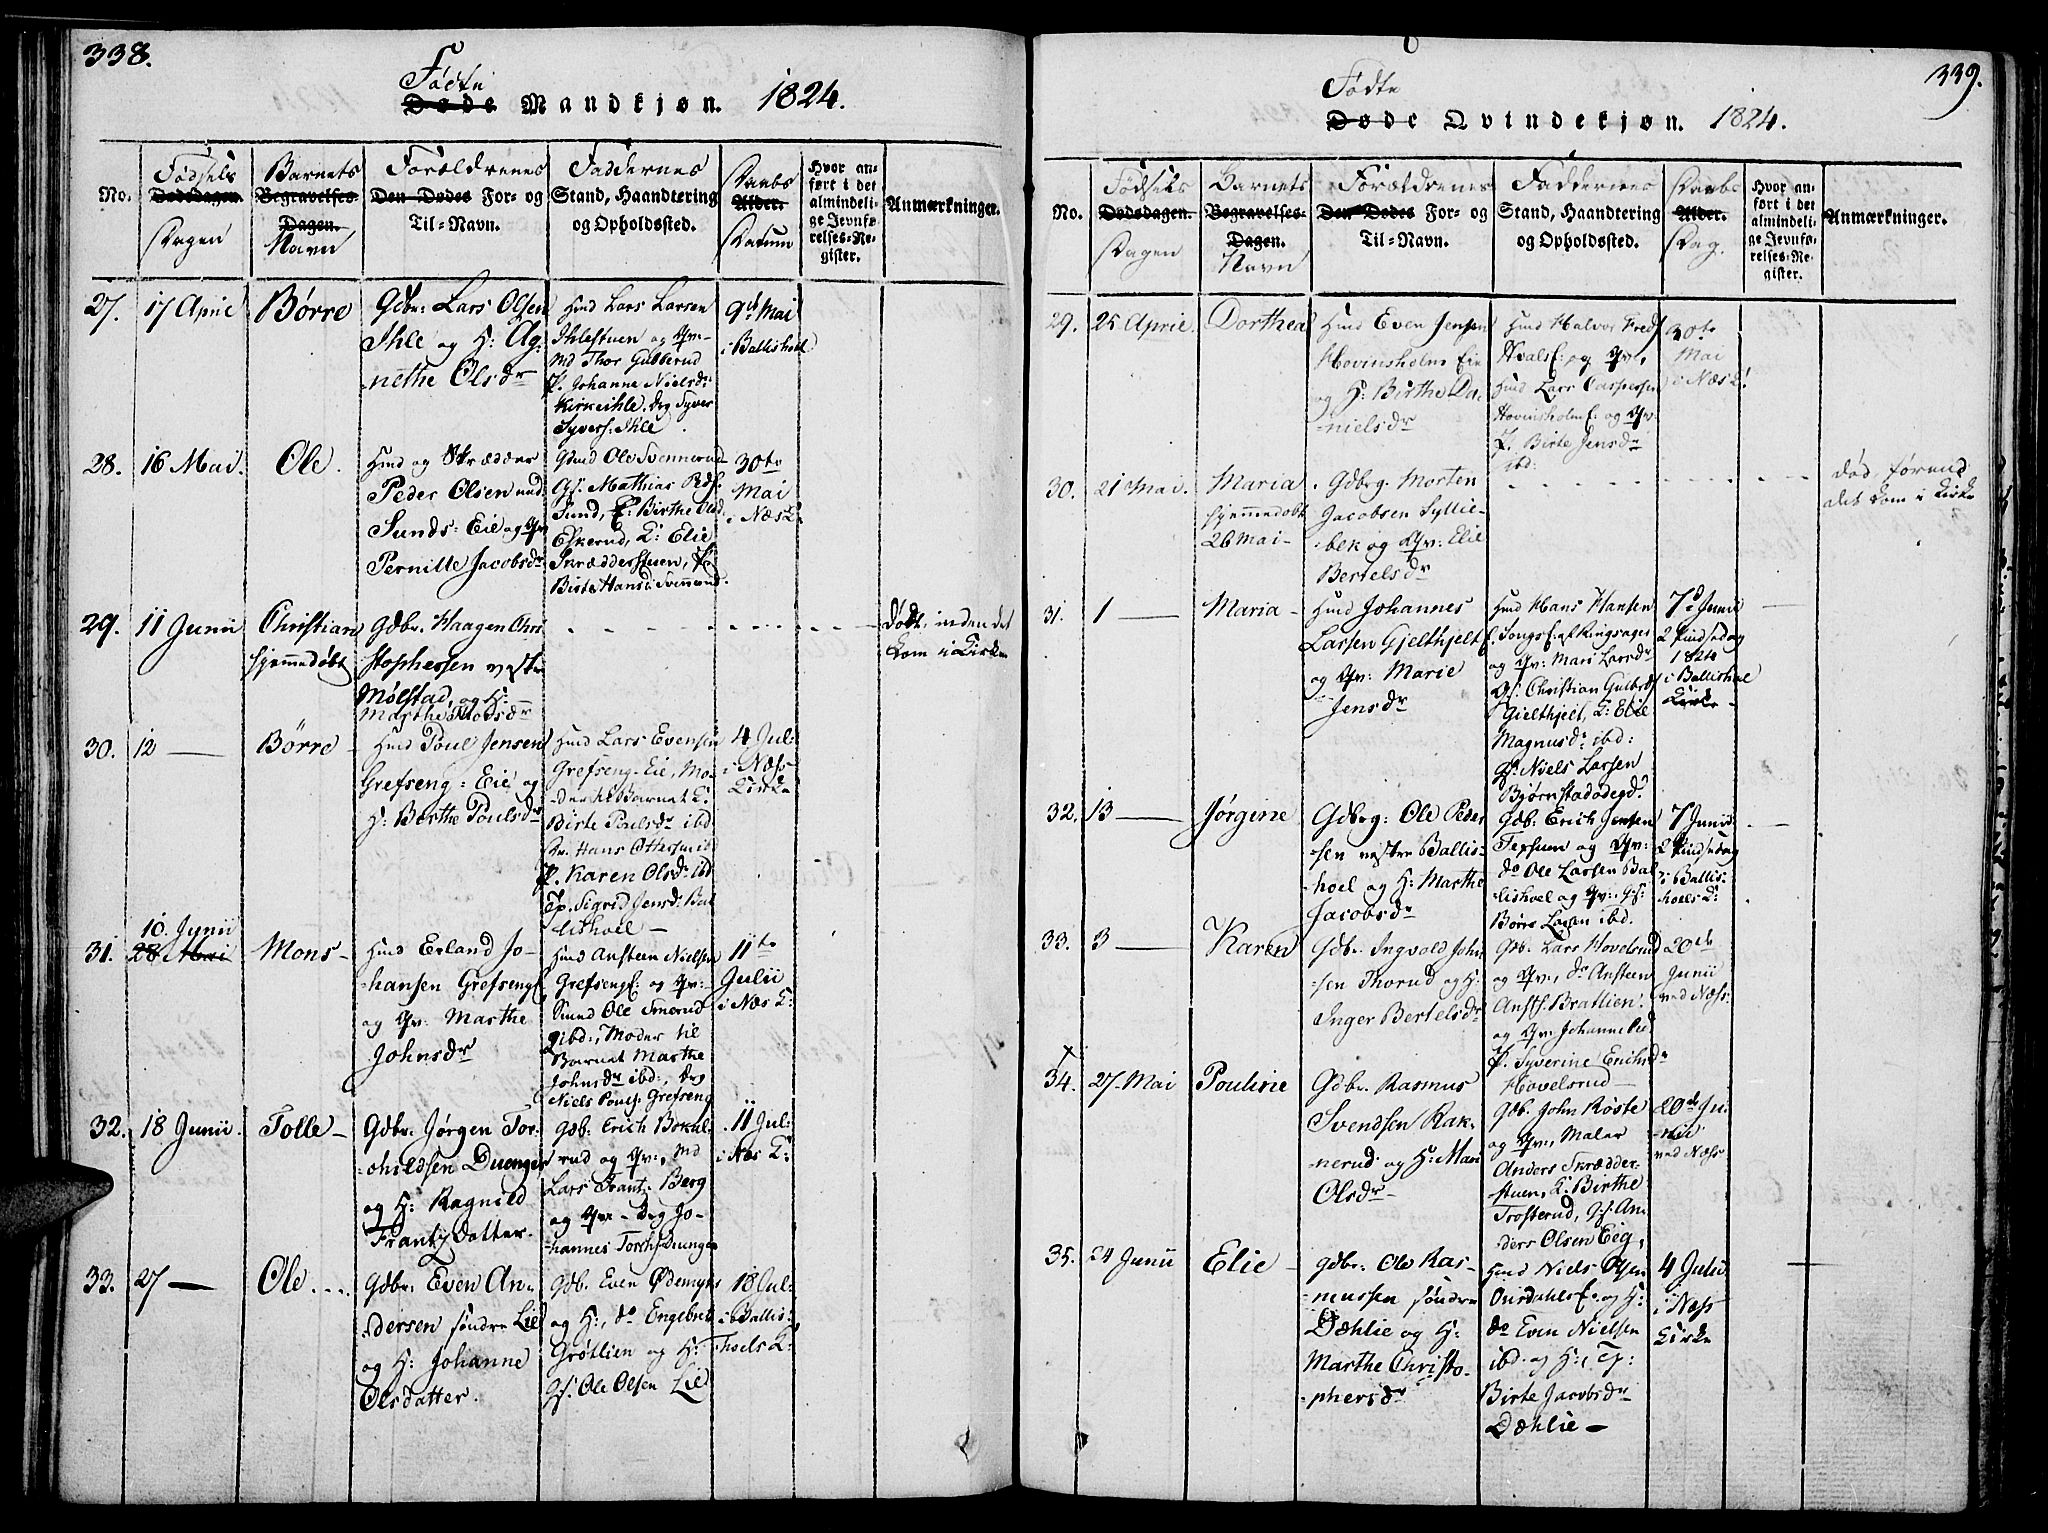 338.
Fødte
Døde Mandkjøn. 1824.
No.
Fødsels
Dødsdagen.
Dagen
Barnets
Begravelses-
Dagen.
Navn
Forældrenes
Den Dødes For- og
Til-Navn.
Faddernes
Stand, Haandtering
og Opholdssted.
Daabs
Alder.
Datum
Hvor an-
ført i det
almindeli-
ge Jevnfø-
relses-Re-
gister.
Anmærkninger.
27.
17 April
Børre
Gdbr: Lars Olsen
Ihle og H: Ag-
nethe Olsdr
Hmd Lars Larsen
Ihlestuen og Qv:
Md Thor Gulberud
P. Johanne Nielsdr
Kirkeihle, Drg Syver
Syvers: Ihle.
9de Mai
i Ballishoel
28.
16 Mai.
Ole.
Hmd og Skrædder
Peder Olsen und.
Sunds: Eie og Qv
Pernille Jacobsdr
Gdmd Ole Svennerud
Gs. Mathias Peds.
Sund, K: Birthe Olsd.
Eskerud, K: Elie
Skrædderstuen, P.
Birte Hansd: Svennerud.
30te
Mai
i Næs K:
29.
11 Junii
Christian
hjemmedøbt
Gdbr. Haagen Chri
stophersen vestre
Mølstad, og H:
Marthe Olsdr
Død, inden det
kom i Kirken
30.
12 —
Børre —
Hmd Poul Jensen
Grefseng: Eie og
H: Berthe Poulsdr
Hmd Lars Evensen
Grefseng-Eie, Mo-
der til Barnet K:
Birte Poulsdr ibd
Dr. Hans Ottersen ibd
P. Karen Olsdr ibd
Tp. Sigrid Jensd: Bal
lishoel —
4 Jul:
i Næss
Kirke
31.
10. Junii
28 Mai
Mons —
Hmd Erland Jo-
hansen Grefsenge.
og Qv: Marthe
Johnsdr
Hmd Ansteen Nielsen
Grefsenge. og Qv:
Smed Ole Smerud
ibd:, Moder til
Barnet Marthe
Johnsdr ibd:, Drg
Niels Pouls: Grefseng
11te
Julii
i Næs K:
32.
18 Junii.
Tolle —
Gdbr. Jørgen Tor-
childsen Duenger
og H: Ragnild
Frantzdatter.
Gdb: Erich Bokal-
rud og Qv:, Md
Lars Frantz. Berg
og Qv: — Drg Jo-
hannes Torchs: Duenger
11 Jul:
i Næs K:
33.
27 —
Ole....
Gdbr. Even An-
dersen søndre Lie
og H: Johanne
Olsdatter.
Gdb. Even Ødemyrs
og H:, do Engebret
Grøtlien og H:
Gs: Ole Olsen Lie
18 Jul:
i Ballis-
hoels K:
339.
Fødte
Døde Qvindekjøn. 1824.
No.
Fødsels
Dødsdagen.
Dagen
Barnets
Begravelses-
Dagen.
Navn
Forældrenes
Den Dødes For- og
Til-Navn.
Faddernes
Stand, Haandtering
og Opholdssted.
Daabs
Alder.
Dag.
Hvor an-
ført i det
almindeli-
ge Jevnfø-
relses-Re-
gister.
Anmærkninger.
29.
25 April.
Dorthea
Hmd Even Jensen
Hovinsholms Eie
og H: Birthe Da-
nielsdr
Hmd Halvor Freds.
Hvalse. og Qv,
Hmd Lars Caspersen
Hovinsholm E. og Qv.
P. Birte Jensdr
ibd:
30te
Mai
i Næs K:
30.
21 Mai.
Maria
hjemmedøbt
26 Mai —
Gdbrg. Morten
Jacobsen Syllie-
bek og Qv: Elie
Bertelsdr
død, førend
det kom i Kirke
31.
1 —
Maria —
Hmd Johannes
Larsen Gjelthjelt E.
og Qv: Marie
Jensdr
Hmd Hans Hansen
Songs E. af Ringsager
og Qv: Mari Larsdr
Gs: Christian Gulbrs
Gielthjelt, K: Elie
Magnusdr ibd:
Gs: Niels Larsen
Bjørnstadødegd.
7d Junii
2 Pindsedag
1824
i Ballishoel
Kirke —
32.
13 —
Jørgine
Gdbrg: Ole Peder
sen vestre Ballis-
hoel og H: Marthe
Jacobsdr
Gdb: Erich Jensen
Tefseum og Qv:
do Ole Larsen Bal
lishoel og Qv: Gs:
Børre Larsen ibd.
7 Junii
2 Pindsedag
i Ballis-
hoels K:
33.
3 —
Karen
Gdbr. Ingvold John
sen Thorud og H:
Inger Bertelsdr
Gdb. Lars Hovelsrud
og Qv:, do Ansteen
Ansts. Brattlien
og Qv: Johanne Ped
P. Syverine Erichsdr
Hovelsrud —
20de
Junii
ved Næss
34.
27 Mai
Pouline
Gdbr. Rasmus
Svendsen Rak-
nerud og H: Mari
Olsdr —
Gdb. John Røste
og Qv:, Maler
Anders Skrædder-
stuen, K: Birthe
Trosterud, Gs: An
ders Olsen Eeg,
20de Ju-
nii
ved Næss
35.
24 Junii
Elie —
Gdbr: Ole Ras-
mussen søndre
Dæhlie og H:
Marthe Christo-
phersdr
Hmd Niels Olsen
Ousdahls E. og H:
do Even Nielsen
ibd. og H:, Tp:
Birte Jacobsdr
Dæhlie —
4 Julii
i Næss
Kirke